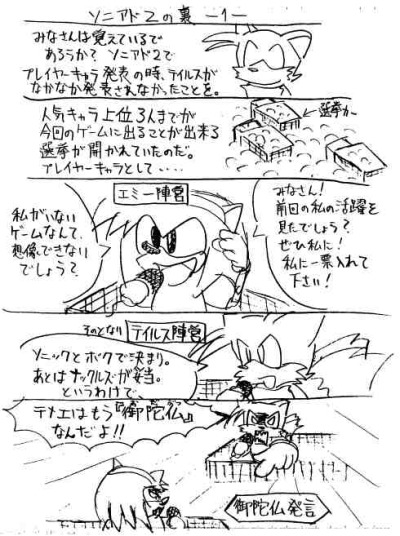 ソニアド2の裏 —1—
みなさんは覚えているで
あろうか？ソニアド2で
プレイヤーキャラ発表の時、テイルスが
なかなか発表されなかったことを。
人気キャラ上位3人までが
今回のゲームに出ることが出来る
選挙が開かれていたのだ。
プレイヤーキャラとして・・・・
←選挙カー
エミー陣営
みなさん！
前回の私の活躍を
見たでしょう？
ぜひ私に！
私に一票入れて
下さい！
私がいない
ゲームなんて、
想像できない
でしょう？
そのとなり テイルス陣営
ソニックとボクで決まり。
あとはナックルズが妥当。
というわけで
テメエはもう『御陀仏』
なんだよ!!
御陀仏発言